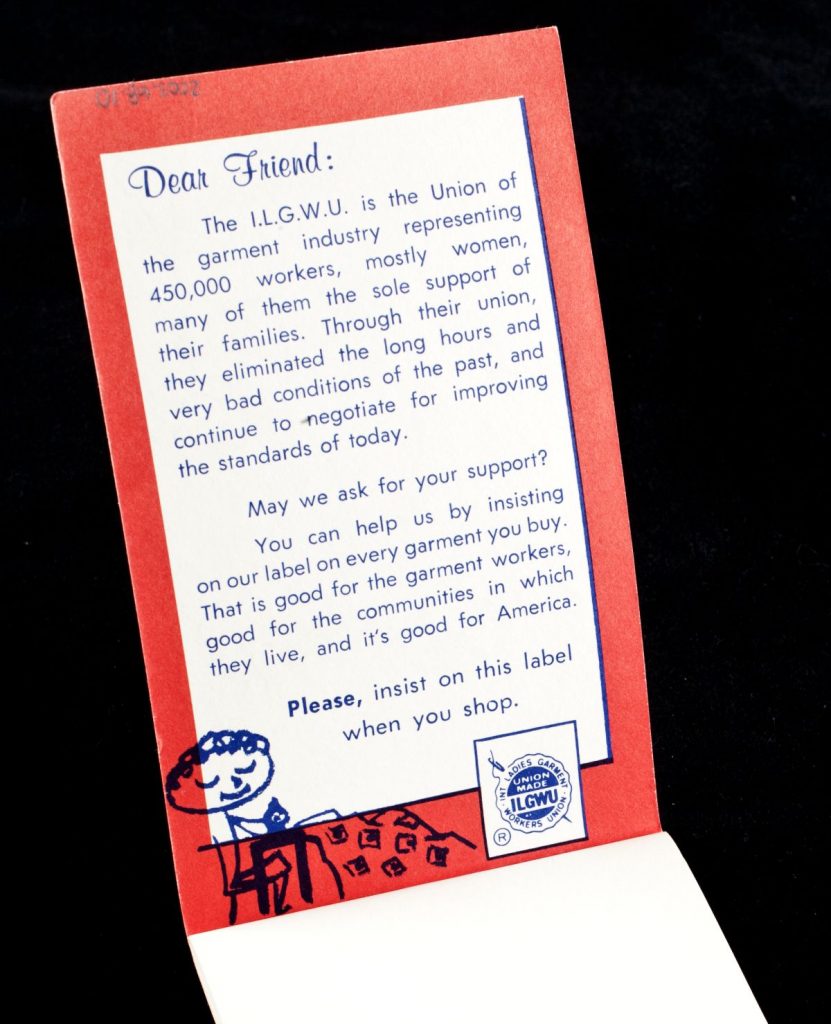 Dear Friend:
The I.L.G.W.U. is the Union of
the garment industry representing
450,000 workers, mostly women,
many of them the sole support of
their families. Through their union,
they eliminated the long hours and
very bad conditions of the past, and
continue to negotiate for improving
the standards of today.
May we ask for your support?
You can help us by insisting
on our label on every garment you buy.
That is good for the garment workers,
good for the communities in which
they live, and it's good for America.
Please, insist on this label
when you shop.
INT. LADIES GARMENT
UNION
MADE
ILGWU
WORKERS UNION
®